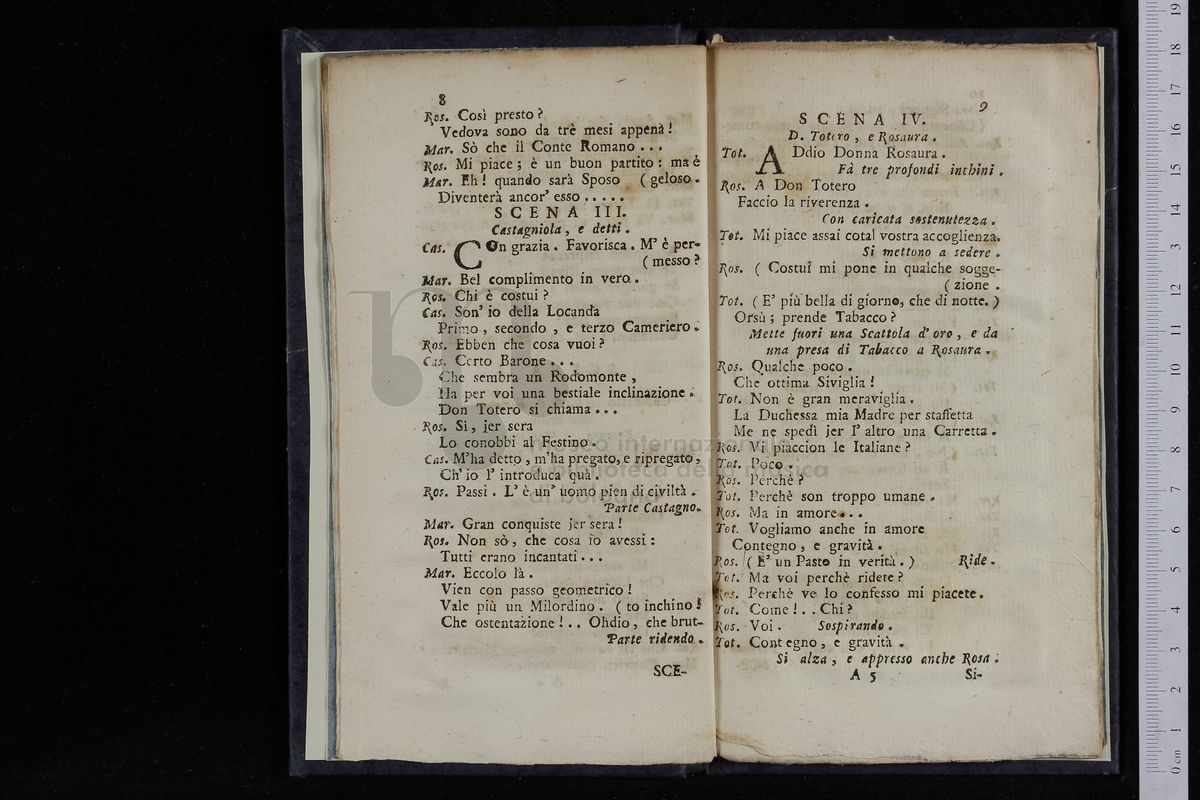 8
Ros. Così presto?
Vedova sono da trè mesi appena!
Mar. Sò che il Conte Romano...
Ros. Mi piace; è un buon partito: ma è
Mar. Eh! quando sarà Sposo (geloso.
Diventerà ancor' esso.....
SCENA III.
Castagniola, e detti.
Cas. COn grazia. Favorisca. M' è per-
(messo?
Mar. Bel complimento in vero..
Ros. Chi è costui?
Cas. Son' io della Locanda
Primo, secondo, e terzo Cameriero.
Ros. Ebben che cosa vuoi?
Cas. Certo Barone...
Che sembra un Rodomonte,
Ha per voi una bestiale inclinazione.
Don Totero si chiama...
Ros. Sì, jer sera
Lo conobbi al Festino.
Cas. M'ha detto, m'ha pregato, e ripregato,
Ch' io l' introduca quà.
Ros. Passi. L' è un' uomo pien di civiltà.
Parte Castagno.
Mar. Gran conquiste jer sera!
Ros. Non sò, che cosa io avessi:
Tutti erano incantati...
Mar. Eccolo là.
Vien con passo geometrico!
Vale più un Milordino. (to inchino!
Che ostentazione!.. Ohdio, che brut-
Parte ridendo.
SCE-
9
SCENA IV.
D. Totero, e Rosaura.
Tot. ADdio Donna Rosaura.
Fà tre profondi inchini.
Ros. A Don Totero
Faccio la riverenza.
Con caricata sostenutezza.
Tot. Mi piace assai cotal vostra accoglienza.
Si mettono a sedere.
Ros. (Costui mi pone in qualche sogge-
(zione.
Tot. (E' più bella di giorno, che di notte.)
Orsù; prende Tabacco?
Mette fuori una Scattola d'oro, e da
una presa di Tabacco a Rosaura.
Ros. Qualche poco.
Che ottima Siviglia!
Tot. Non è gran meraviglia.
La Duchessa mia Madre per staffetta
Me ne spedì jer l' altro una Carretta.
Ros. Vi piaccion le Italiane?
Tot. Poco.
Ros. Perchè?
Tot. Perchè son troppo umane.
Ros. Ma in amore...
Tot. Vogliamo anche in amore
Contegno, e gravità.
Ros. (E' un Pasto in verità.) Ride.
Tot. Ma voi perchè ridete?
Ros. Perchè ve lo confesso mi piacete.
Tot. Come!.. Chi?
Ros. Voi. Sospirando.
Tot. Contegno, e gravità.
Si alza, e appresso anche Rosa.
A 5 Si-
museo internazionale
e biblioteca della musica
di bologna
0 cm 1 2 3 4 5 6 7 8 9 10 11 12 13 14 15 16 17 18 19